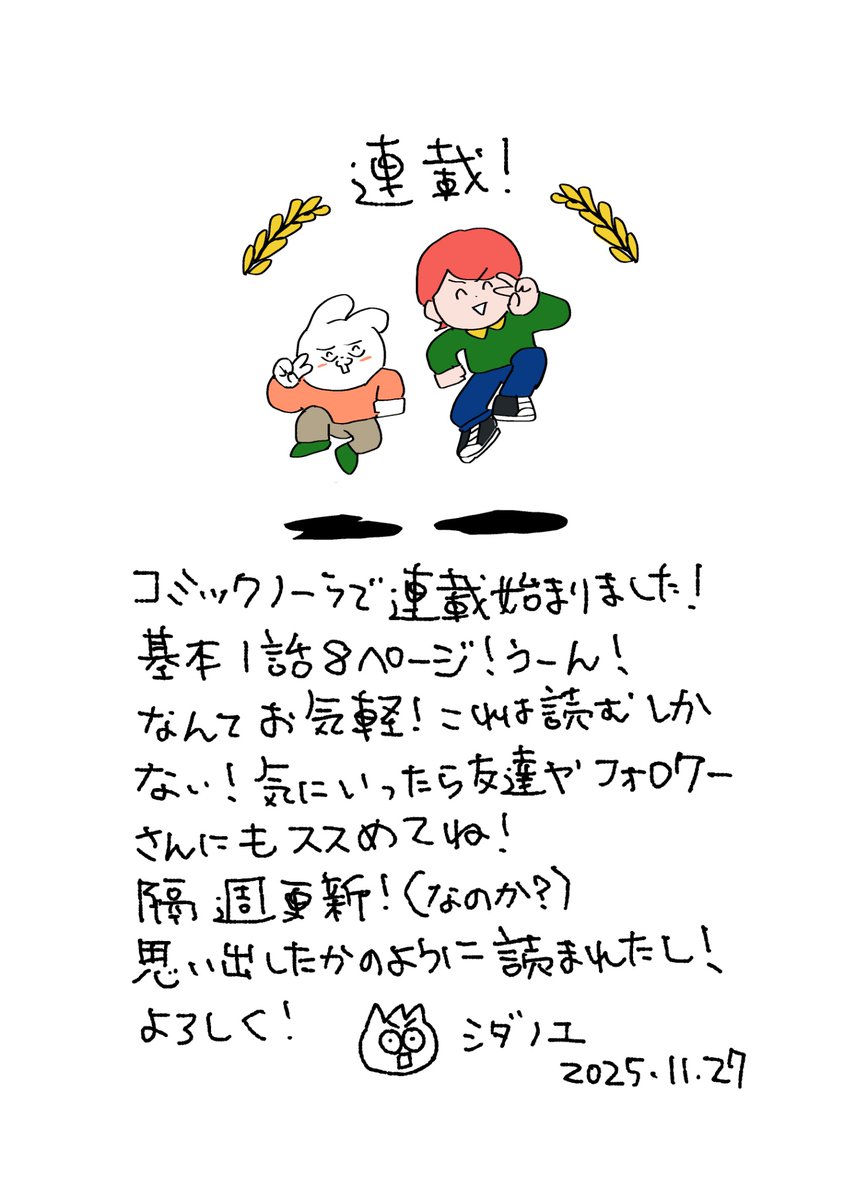 連載!
コミックノーラで連載始まりました!
基本1話8ページ!うーん!
なんてお気軽!これは読むしか
ない!気にいったら友達やフォロワー
さんにもススめてね!
隔週更新!(なのか?)
思い出したかのように読まれたし!
よろしく!
シダノユ
2025.11.27